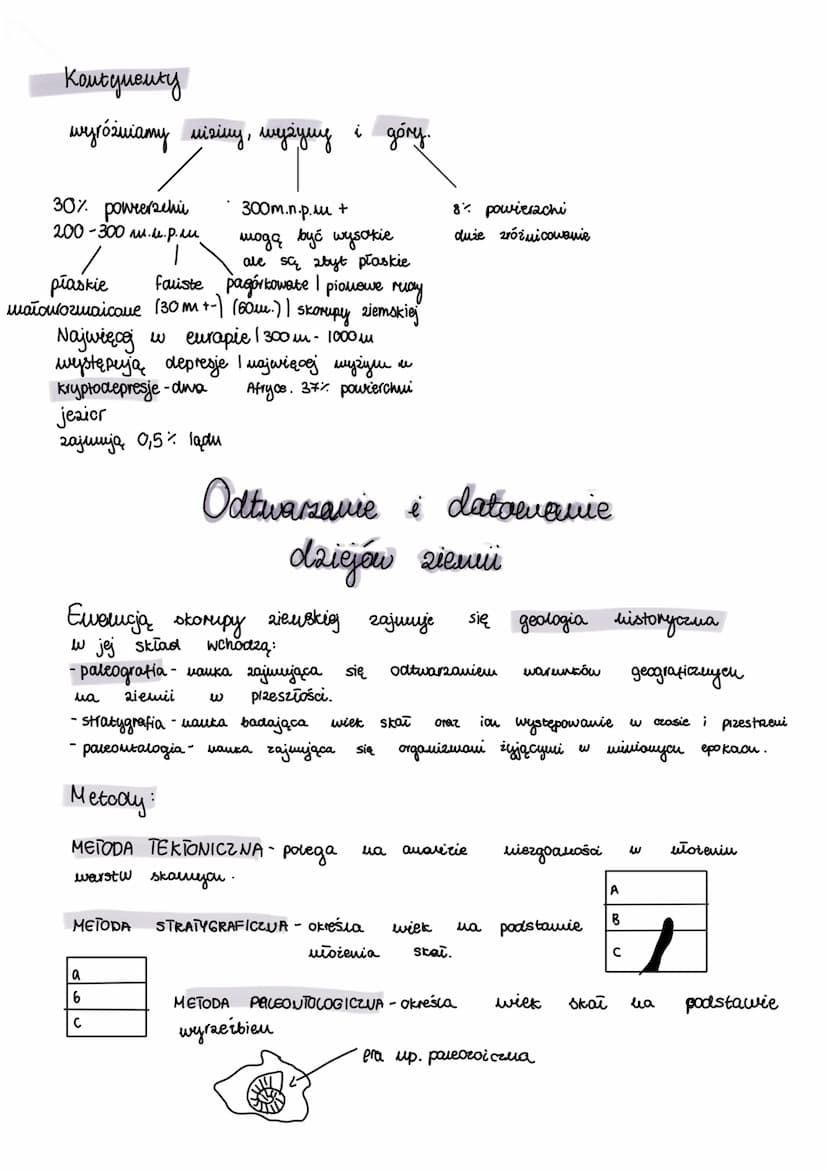 Kontynenty
wyróżniamy niziny, wyżyny i góry.
30% powierzchni
200-300 m.n.p.m
300m.n.p.m +
mogą być wysokie
ale są zbyt płaskie
8% powierzchni
duże zróżnicowanie
płaskie faliste pagórkowate | pionowe ruchy
małourozmaicone (30 m +-) (60m.) | skorupy ziemskiej
Najwięcej w europie | 300 m - 1000 m
występują depresje | najwięcej wyżyn w
kryptodepresje - dna Afryce. 37% powierchni
jezior
zajmują 0,5% lądu
Odtwarzanie i datowanie
dziejów ziemii
Ewolucją skorupy ziemskiej zajmuje się geologia historyczna
w jej skład wchodzą:
- paleografia - nauka zajmująca się odtwarzaniem warunków geograficznych
na ziemii w przeszłości.
- stratygrafia - nauka badająca wiek skał oraz ich występowanie w czasie i przestrzeni
- paleontalogia - nauka zajmująca się organizmami żyjącymi w minionych epokach.
Metody:
METODA TEKTONICZNA - polega na analizie niezgodności w ułożeniu
warstw skalnych.
A
B
C
METODA STRATYGRAFICZNA - określa wiek na podstawie
ułożenia skał.
a
b
c
METODA PALEONTOLOGICZNA - określa wiek skał na podstawie
wyrzeźbień
era np. paleozoiczna